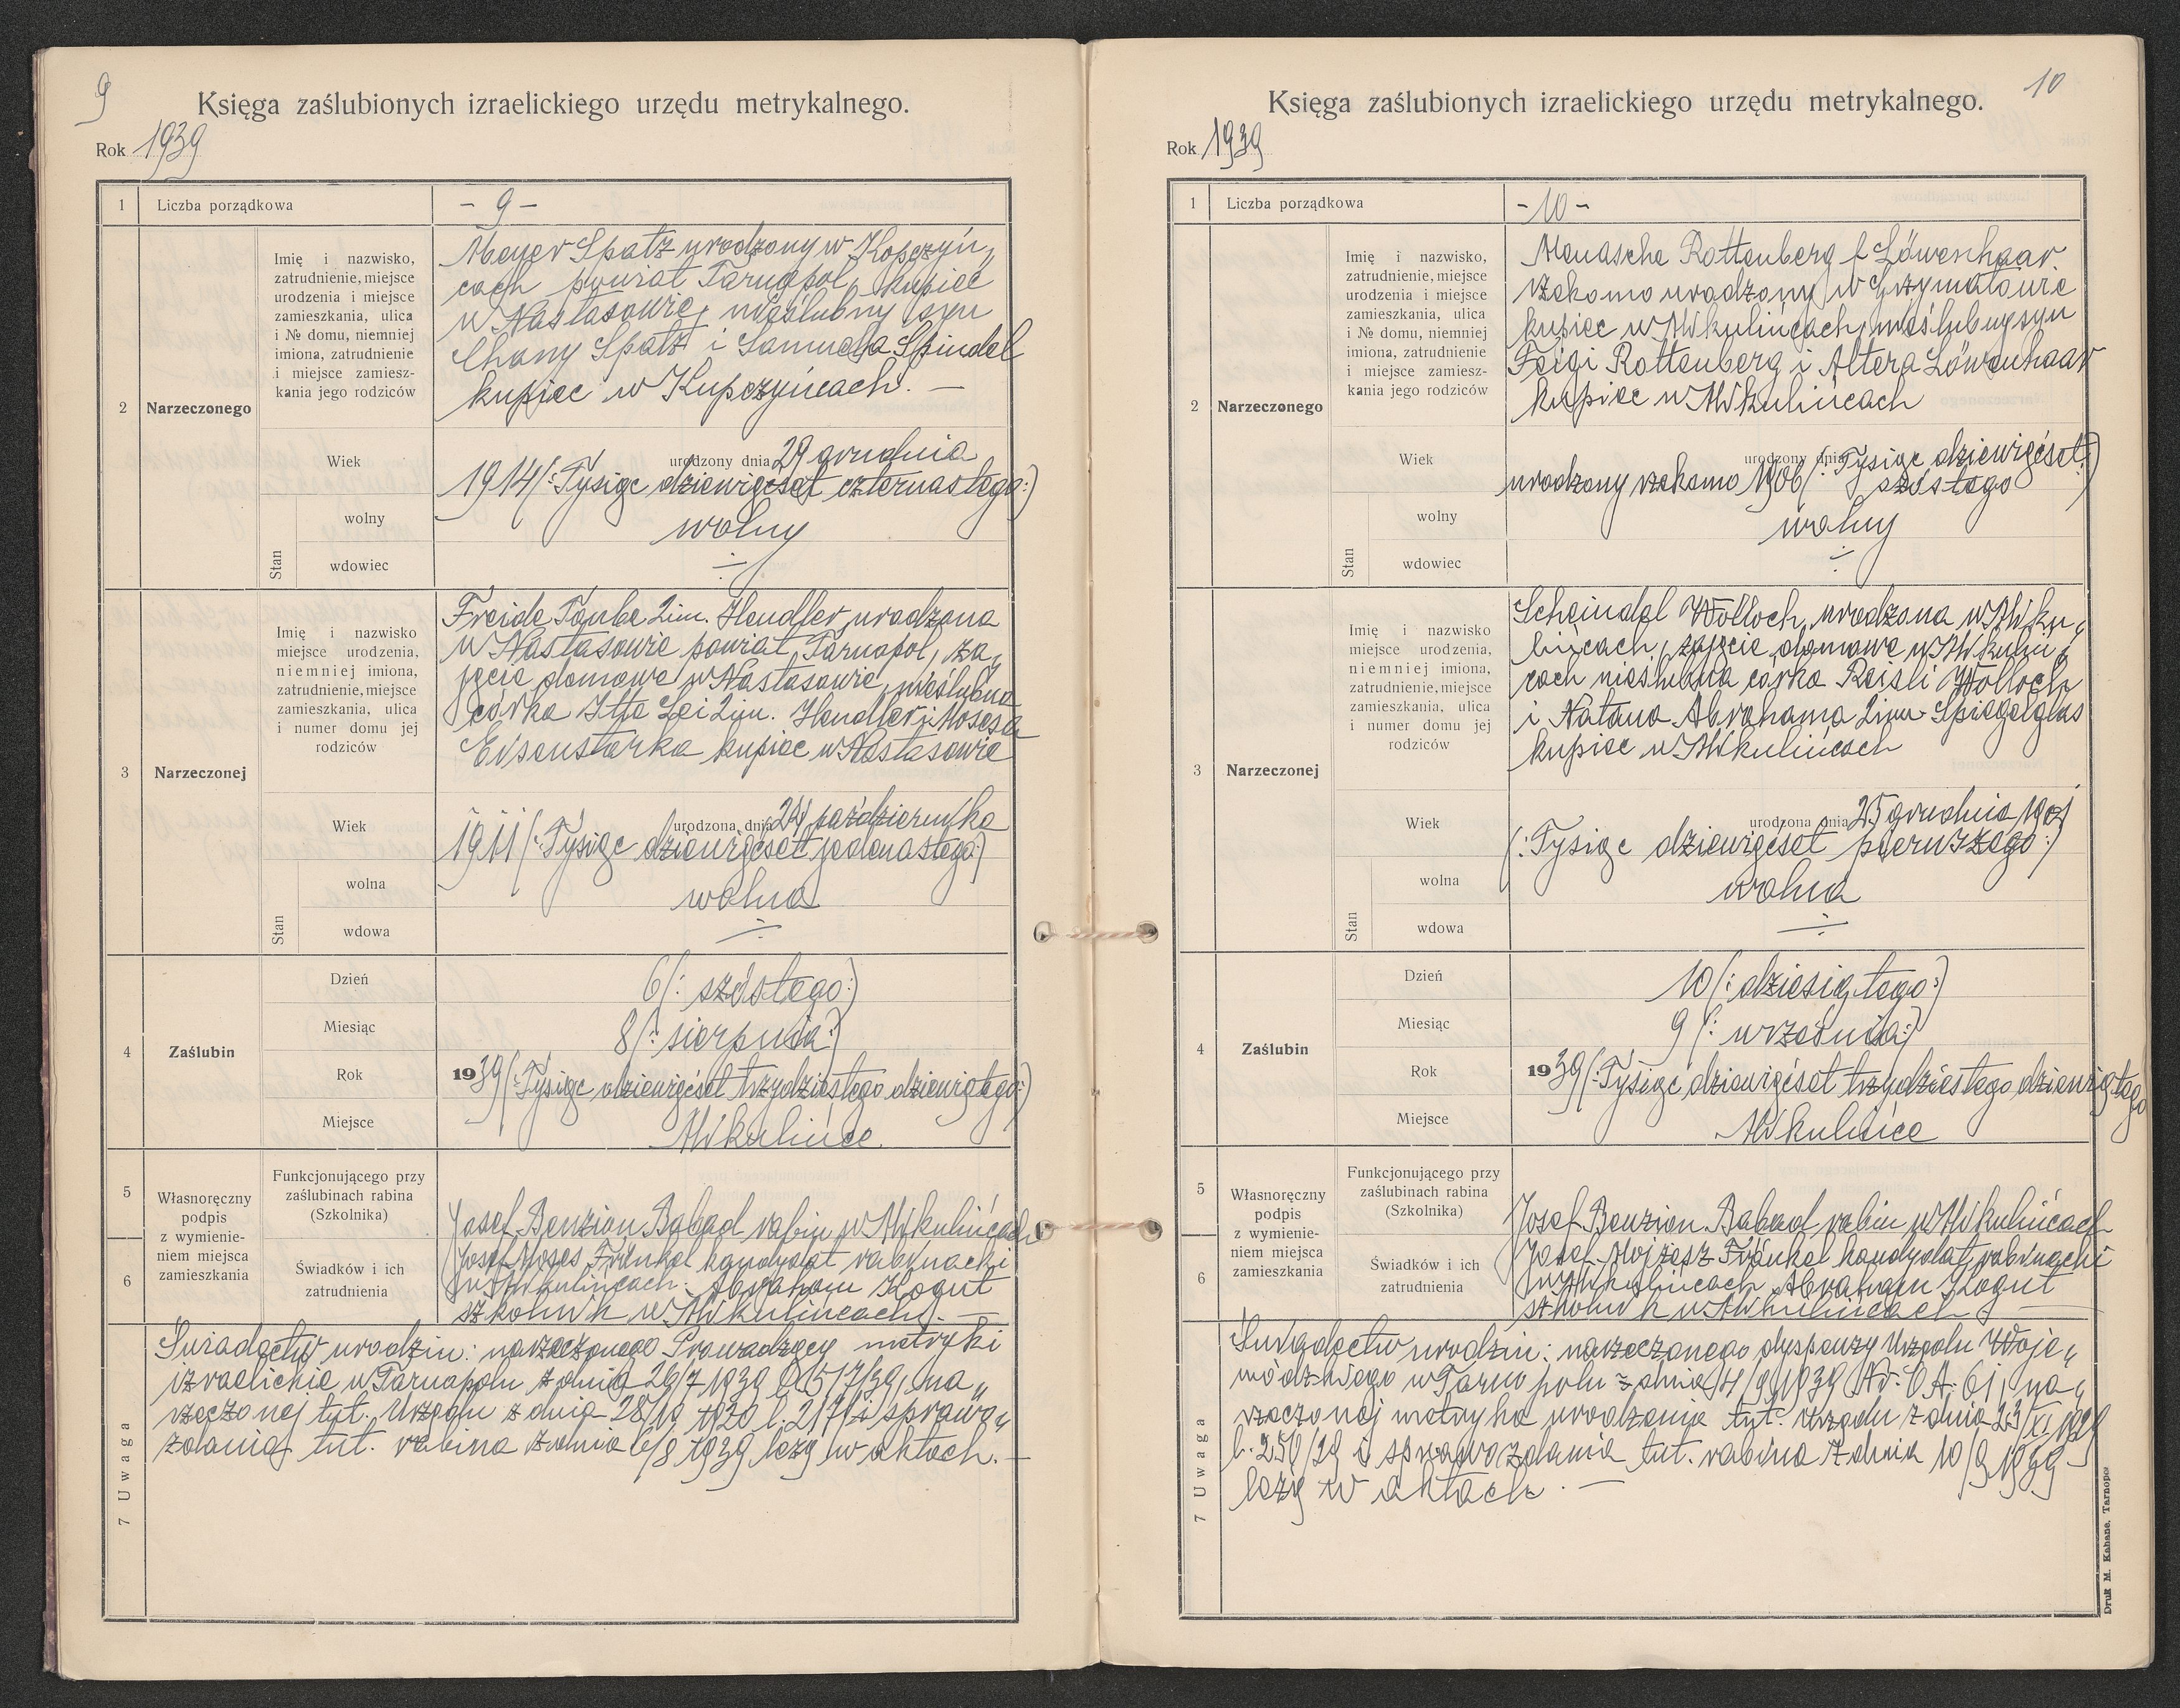 9
Księga zaślubionych izraelickiego urzędu metrykalnego.
Rok 1939
1 Liczba porządkowa - 9 -
2 Narzeczonego
Imię i nazwisko,
zatrudnienie, miejsce
urodzenia i miejsce
zamieszkania, ulica
i № domu, niemniej
imiona, zatrudnienie
i miejsce zamiesz-
kania jego rodziców
Meyer Spatz urodzony w Kopczyń„
cach powiat Tarnopol, kupiec
w Nastasowie, nieślubny syn
Chany Spatz i Samuela Spindel
kupiec w Kupczyńcach. —
Wiek
urodzony dnia 29 grudnia
1914 (: Tysiąc dziewięćset czternastego :)
Stan
wolny wolny
wdowiec
3 Narzeczonej
Imię i nazwisko
miejsce urodzenia,
niemniej imiona,
zatrudnienie, miejsce
zamieszkania, ulica
i numer domu jej
rodziców
Freide Taube 2im. Hendler, urodzona
w Nastasowie powiat Tarnopol, za„
jęcie domowe w Nastasowie, nieślubna
córka Itta Lei 2im. Hendler i Mosesa
kupiec w Nastasowie
Wiek
urodzona dnia 24 października
1911 (: Tysiąc dziewięćset jedenastego :)
Stan
wolna wolna
wdowa
4 Zaślubin
Dzień 6 (: szóstego :)
Miesiąc 8 (: sierpnia :)
Rok 1939 (: Tysiąc dziewięćset trzydziestego dziewiątego :)
Miejsce Mikulińce
5
6
Własnoręczny
podpis
z wymienie-
niem miejsca
zamieszkania
Funkcjonującego przy
zaślubinach rabina
(Szkolnika)
Josef Benzion Babad rabin w Mikulińcach
Świadków i ich
zatrudnienia
Josef Moses Frenkel kandydat rabinacki
w Mikulińcach. Abraham Kogut
szkolnik w Mikulińcach. —
7 Uwaga
Świadectw urodzin: narzeczonego Prowadzący metryki
izraelickie w Tarnopolu z dnia 26/7 1939 517/39, na„
rzeczonej tut. Urzędu z dnia 28/ i sprawo„
zdania tut. rabina z dnia 6/8 1939 leży w aktach. —
10
Księga zaślubionych izraelickiego urzędu metrykalnego.
Rok 1939
1 Liczba porządkowa - 10 -
2 Narzeczonego
Imię i nazwisko,
zatrudnienie, miejsce
urodzenia i miejsce
zamieszkania, ulica
i № domu, niemniej
imiona, zatrudnienie
i miejsce zamiesz-
kania jego rodziców
Menasche Rottenberg f Löwenhaar
rzekomo urodzony w Grzymałowie
kupiec w Mikulińcach, nieślubny syn
Feigi Rottenberg i Altera Löwenhaar
kupiec w Mikulińcach
Wiek
urodzony dnia
urodzony rzekomo 1906 (: Tysiąc dziewięćset
szóstego :)
Stan
wolny wolny
wdowiec
3 Narzeczonej
Imię i nazwisko
miejsce urodzenia,
niemniej imiona,
zatrudnienie, miejsce
zamieszkania, ulica
i numer domu jej
rodziców
Scheindel Wolloch, urodzona w Miku„
lińcach, zajęcie domowe w Mikuliń„
cach nieślubna córka Reisli Wolloch
i Natana Abrahama 2im Spiegelglas
kupiec w Mikulińcach
Wiek
urodzona dnia 25 grudnia 1901
(: Tysiąc dziewięćset pierwszego :)
Stan
wolna wolna
wdowa
4 Zaślubin
Dzień 10 (: dziesiątego :)
Miesiąc 9 (: września :)
Rok 1939 (: Tysiąc dziewięćset trzydziestego dziewiątego
Miejsce Mikulińce
5
6
Własnoręczny
podpis
z wymienie-
niem miejsca
zamieszkania
Funkcjonującego przy
zaślubinach rabina
(Szkolnika)
Josef Benzion Babad rabin w Mikulińcach
Świadków i ich
zatrudnienia
Josef Mojżesz Fränkel kandydat rabinacki
w Mikulińcach Abraham Kogut
szkolnik w Mikulińcach —
7 Uwaga
Świadectw urodzin: narzeczonego dyspenzy Urzędu Woje„
wódzkiego w Tarnopolu z dnia 4/9 1939 na„
rzeczonej metryka urodzenia tut. Urzędu z dnia 23/XI
i sprawozdania tut. rabina z dnia 10/9 1939
leży w aktach. —
Druk M. Kahane, Tarnopol